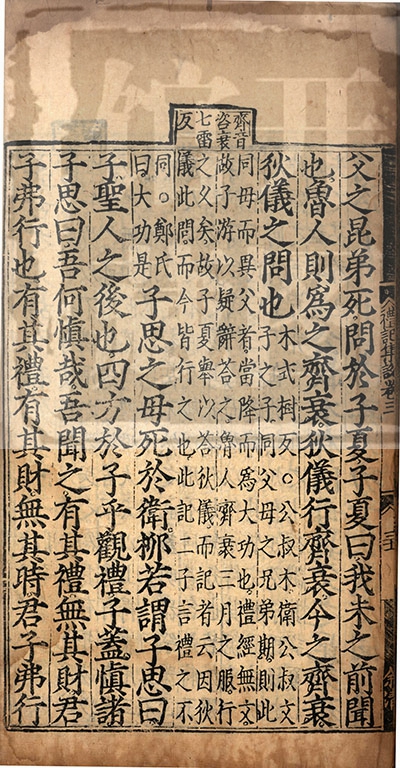 齊音
咨衰
七雷
反
父之昆弟死問於子夏子夏曰我未之前聞
也魯人則爲之齊衰狄儀行齊衰今之齊衰
狄儀之問也
木式樹反○公叔木衛公叔文
子之子同父母之兄弟期則此
同母而異父者當降而爲大功也禮經無文
故子游以疑辭荅之魯人齊衰三月之服行
之久矣故子夏舉以荅狄儀而記者云因狄
儀此問而今皆行之也此記二子言禮之不
同○鄭氏
曰大功是
子思之母死於衛栁若謂子思曰
子聖人之後也四方於子乎觀禮子蓋慎諸
子思曰吾何慎哉吾聞之有其禮無其財君
子弗行也有其禮有其財無其時君子弗行